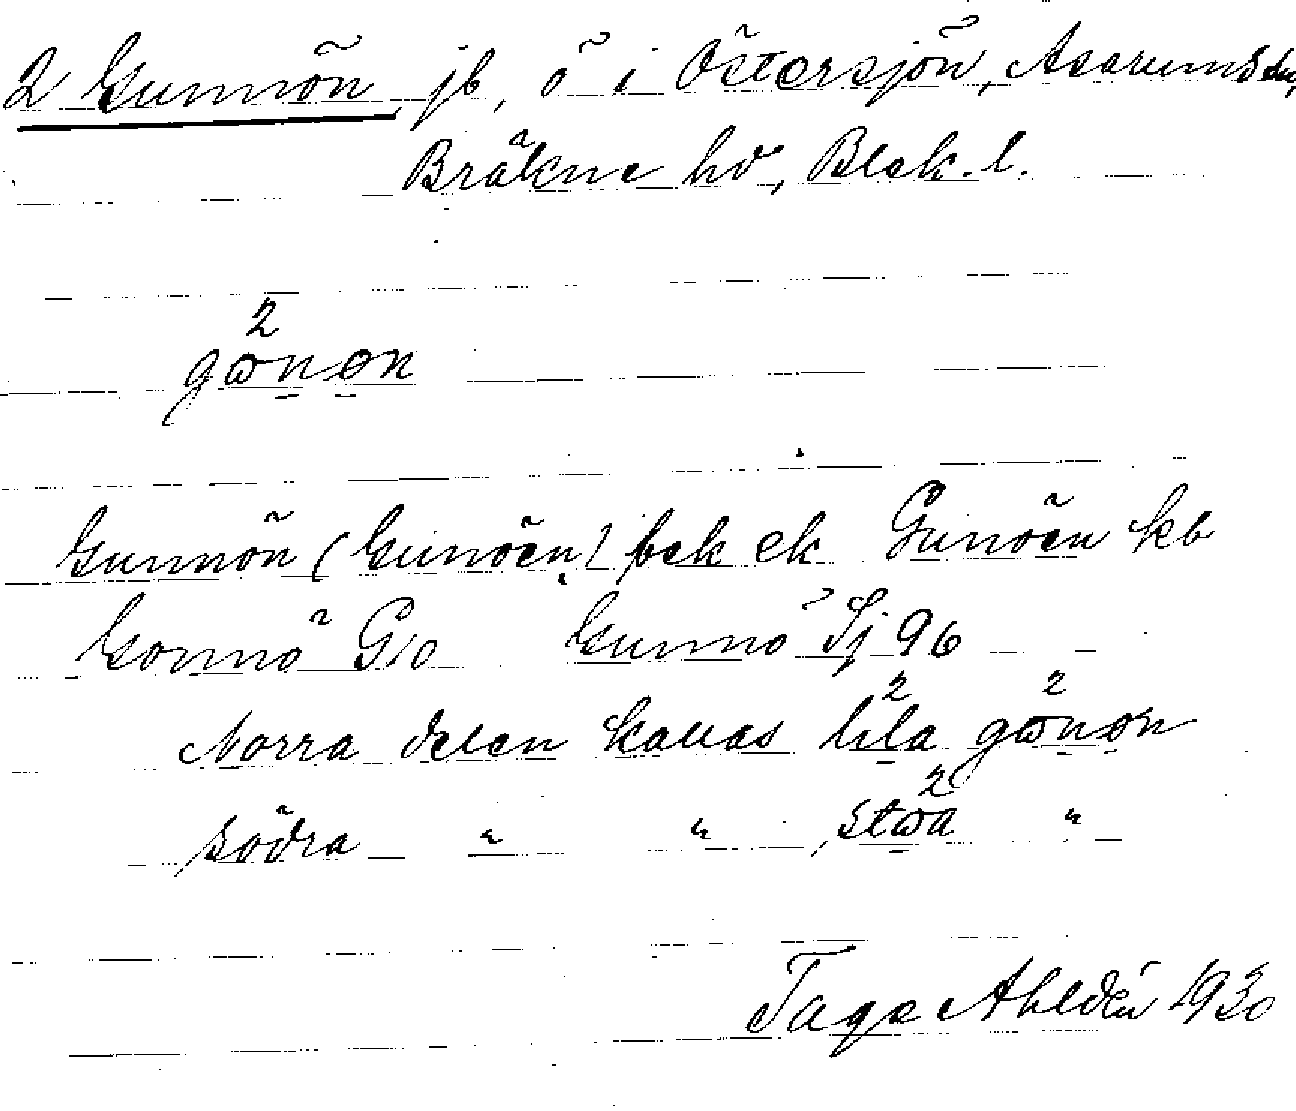 2 Gunnön jb, ö i Östersjön, Asarums sn,
Bräkne hd, Blek. l.
2
gωnøn
Gunnön (Gunöen) bek ek Gunöen kb
Gonnö G10 Gunnö Sj 96
Norra delen kallas lila gωnøn
södra " " stωa "
Tage Ahldén 1930